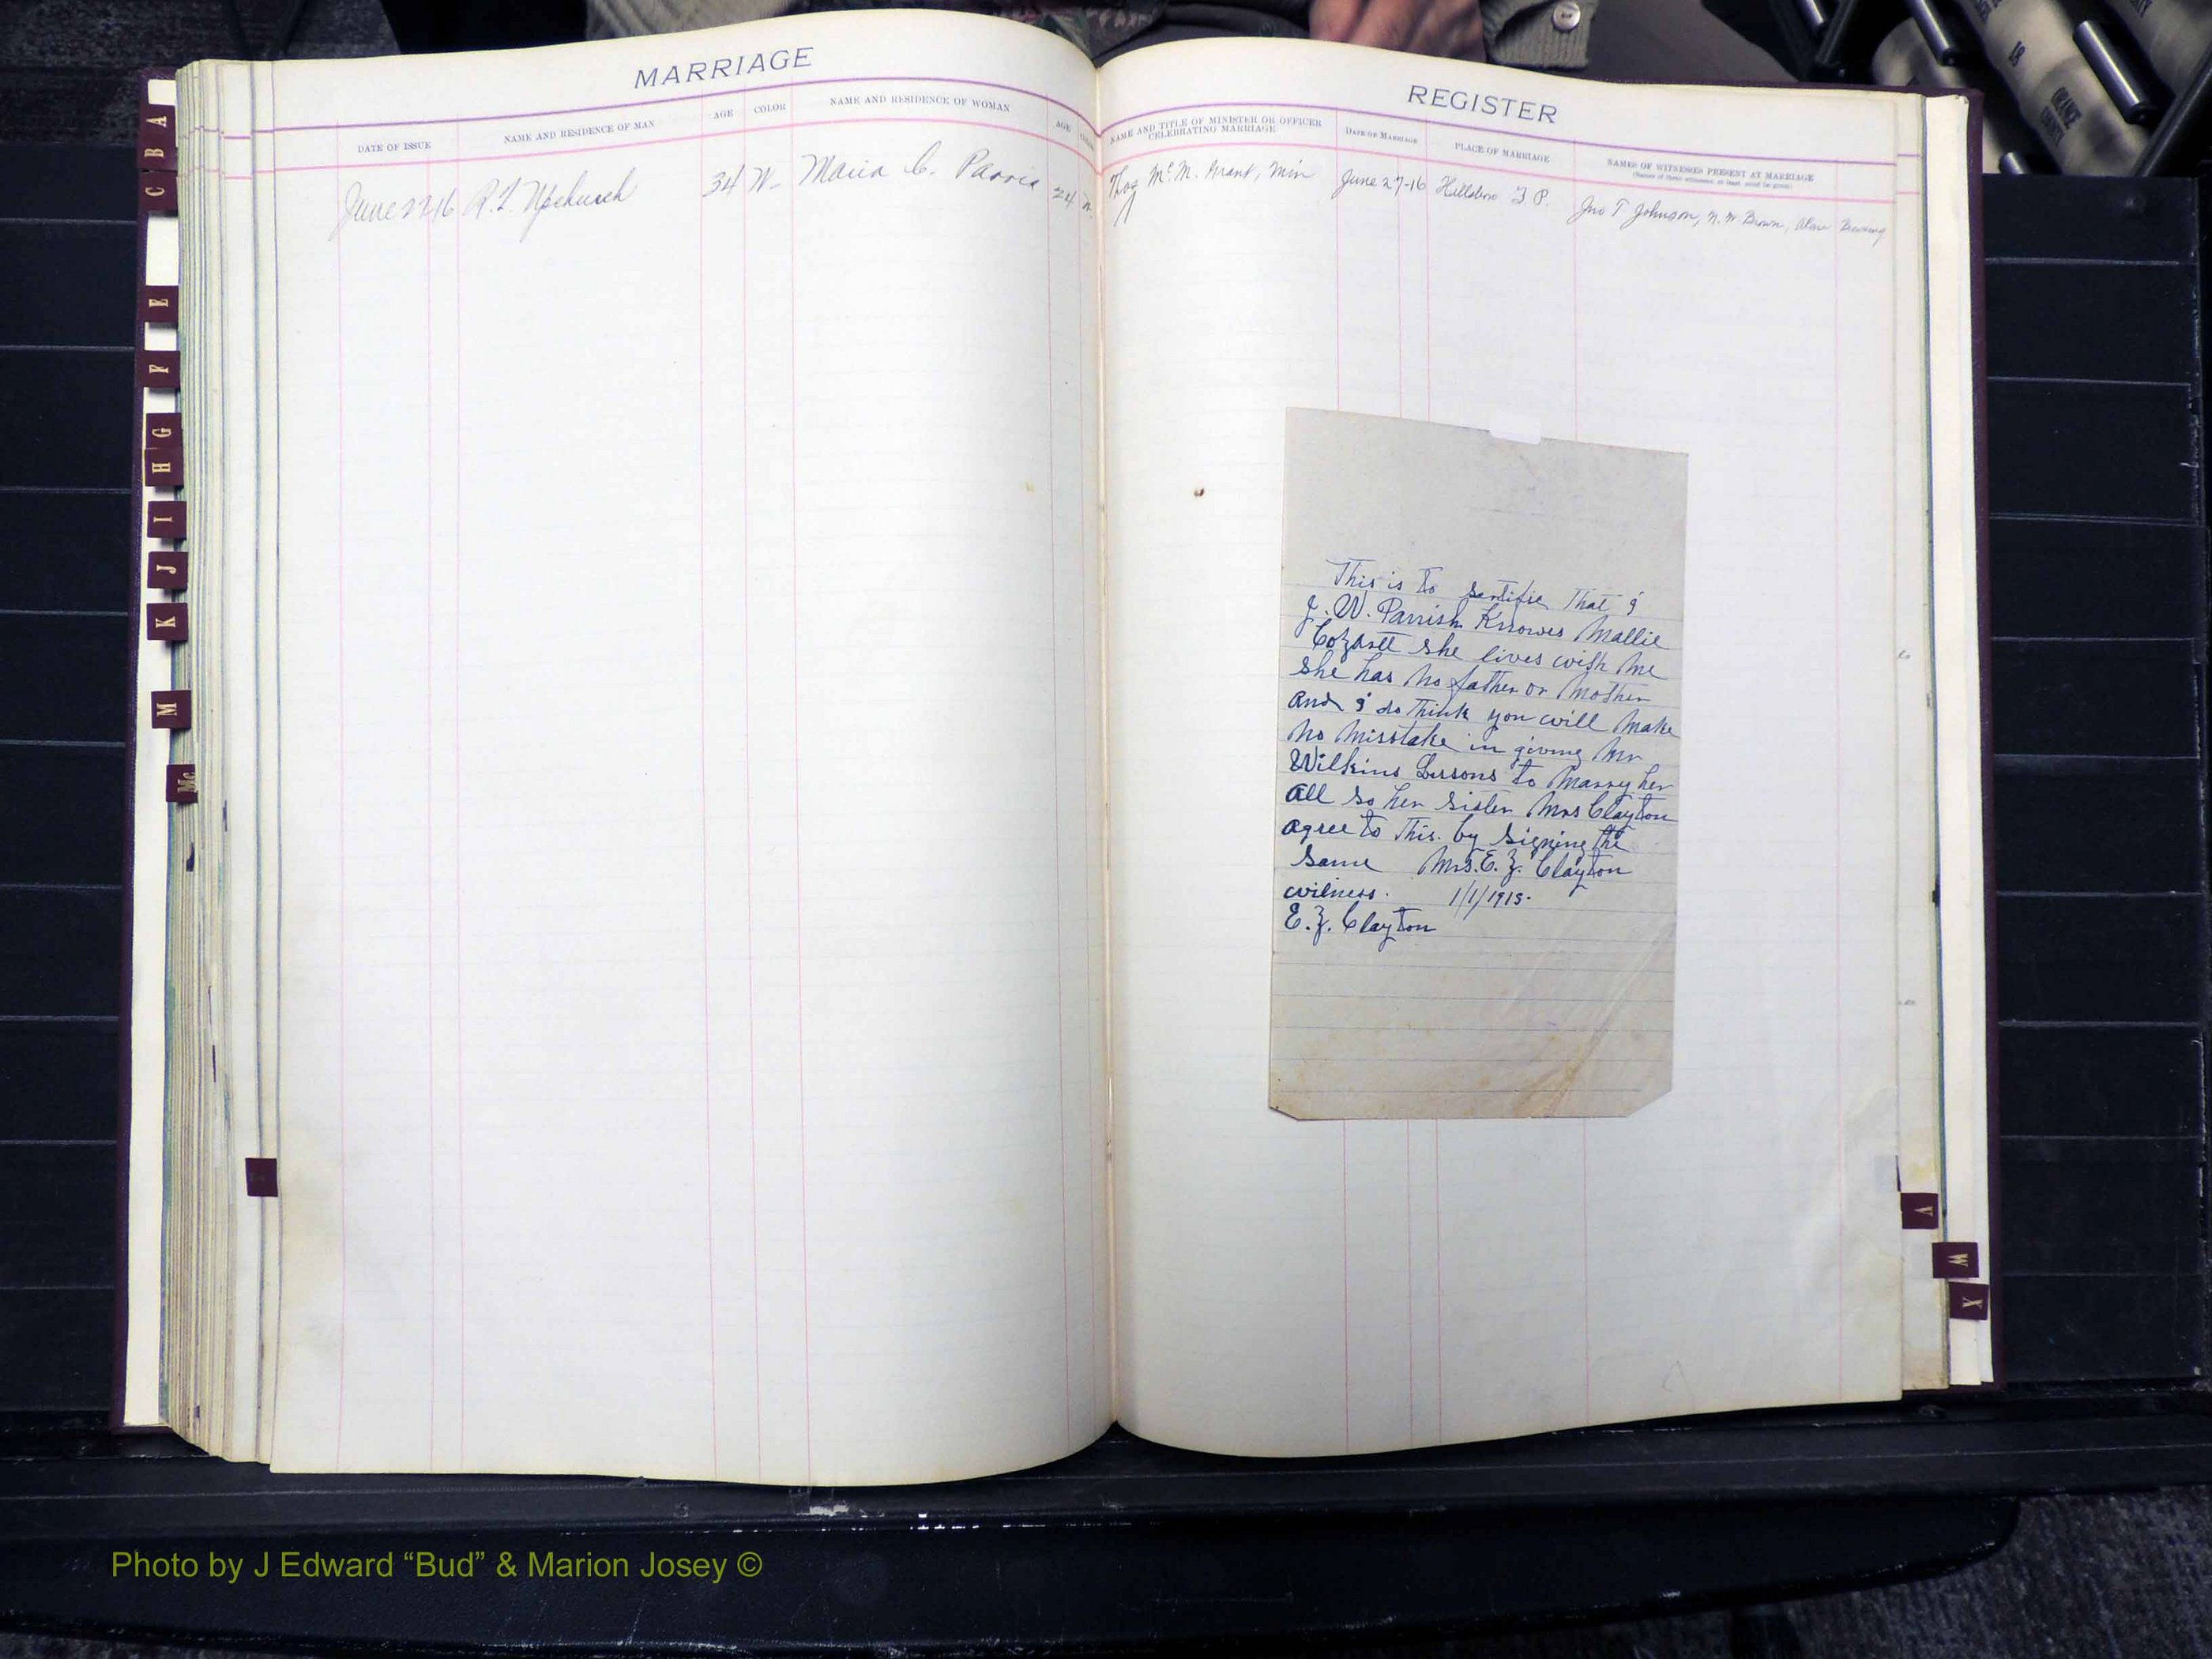 MARRIAGE
DATE OF ISSUE
NAME AND RESIDENCE OF MAN
AGE
COLOR
NAME AND RESIDENCE OF WOMAN
AGE
June 27 16 R. L. Upchurch 34 W- Maria C. 24 W.
REGISTER
NAME AND TITLE OF MINISTER OR OFFICER
CELEBRATING MARRIAGE
DATE OF MARRIAGE
PLACE OF MARRIAGE
NAMES OF WITNESSES PRESENT AT MARRIAGE
(Names of three witnesses, at least, must be given)
Thos McM. Grant, Min June 27-16 Hillsboro T.P. Jno T Johnson, N. W. Brown,
This is to sertifie That I
J. W. Parrish Knowes Mallie
Cozartt she lives with me
she has no father or mother
and I do think you will make
no misstake in giving Mr
Wilkins Lissons to marry her
all so her sister Mrs Clayton
agree to this. by signing the
same Mrs. E. Z. Clayton
witness. 1/1/1915.
E. Z. Clayton
A
B
C
E
F
G
H
I
J
K
M
Mc
V
W
X
18
ORANGE
COUNTY
Photo by J Edward “Bud” & Marion Josey ©